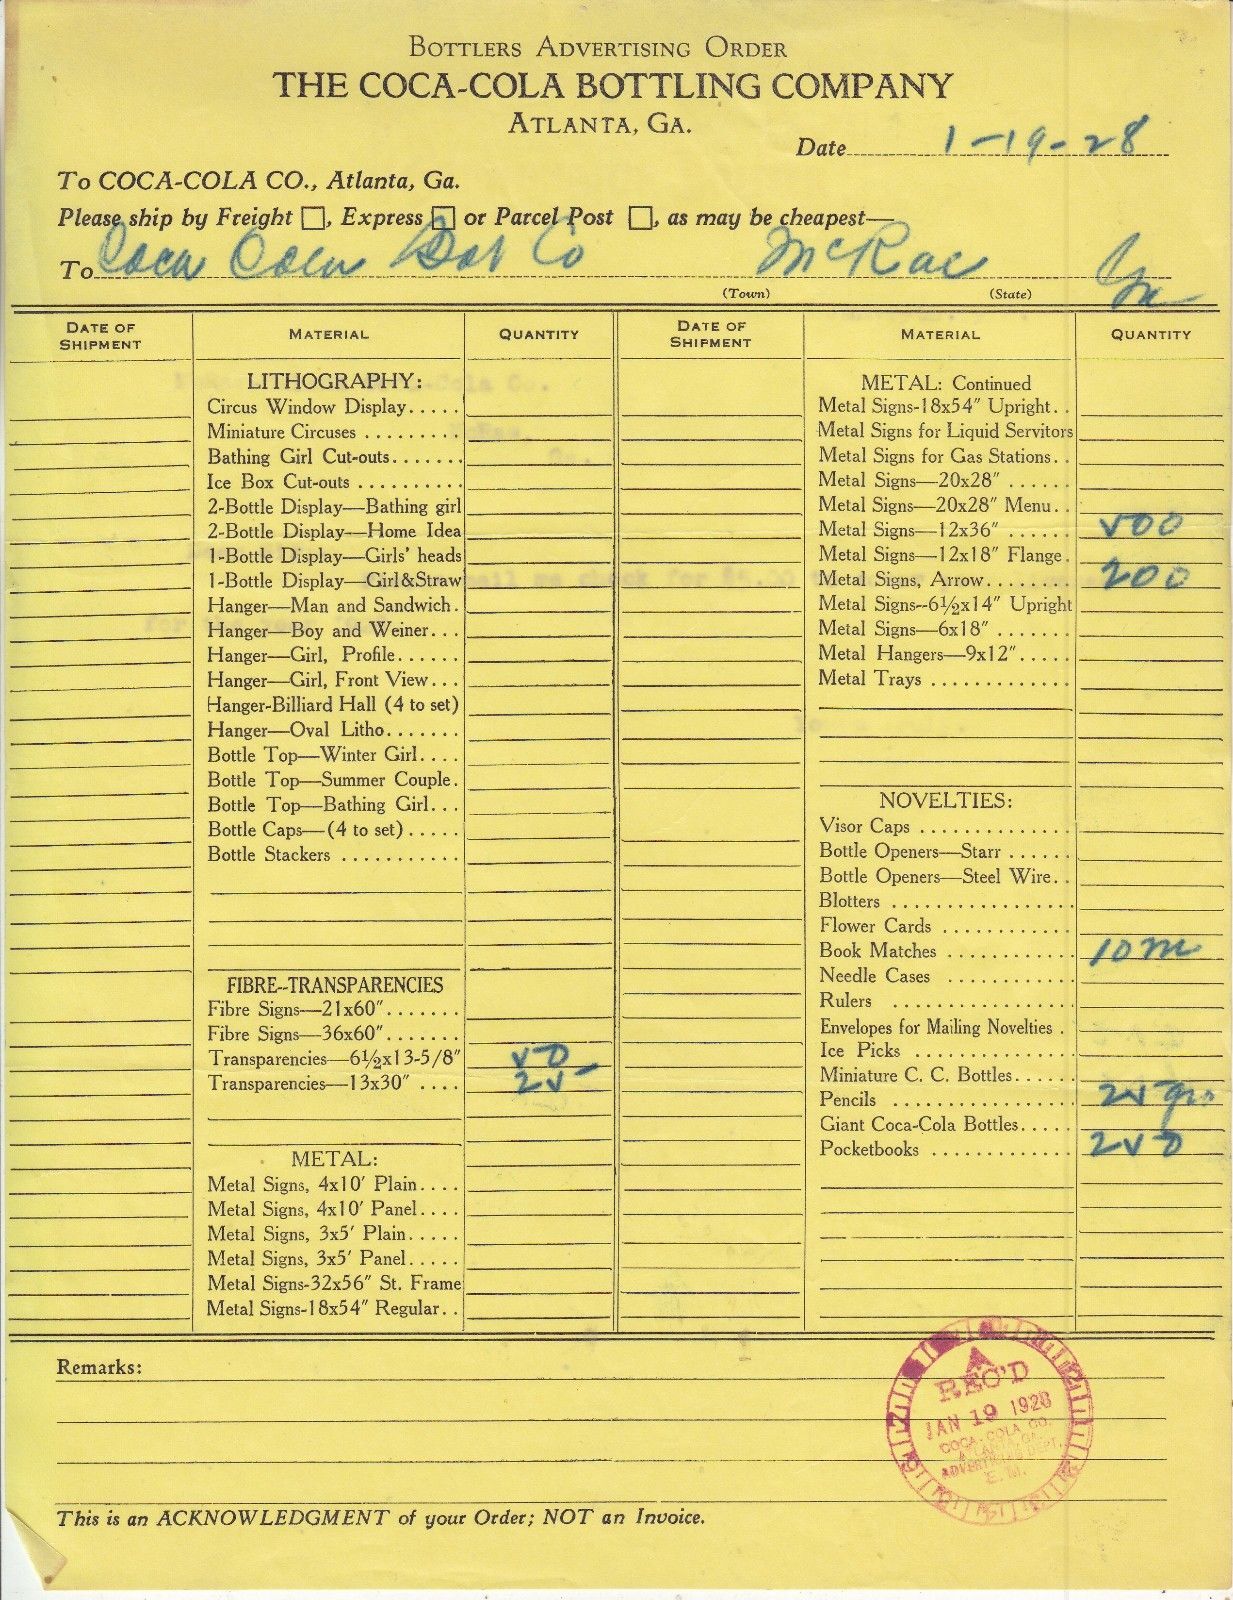 BOTTLERS ADVERTISING ORDER
THE COCA-COLA BOTTLING COMPANY
ATLANTA, GA.
Date 1-19-28
To COCA-COLA CO., Atlanta, Ga.
Please ship by Freight ☐, Express ☐ or Parcel Post ☐, as may be cheapest—
To Coca Cola Bot Co McRae Ga
(Town) (State)
DATE OF SHIPMENT MATERIAL QUANTITY
LITHOGRAPHY:
Circus Window Display.....
Miniature Circuses ........
Bathing Girl Cut-outs.......
Ice Box Cut-outs ..........
2-Bottle Display—Bathing girl
2-Bottle Display—Home Idea
1-Bottle Display—Girls' heads
1-Bottle Display—Girl&Straw
Hanger—Man and Sandwich.
Hanger—Boy and Weiner...
Hanger—Girl, Profile......
Hanger—Girl, Front View...
Hanger-Billiard Hall (4 to set)
Hanger—Oval Litho.......
Bottle Top—Winter Girl....
Bottle Top—Summer Couple.
Bottle Top—Bathing Girl...
Bottle Caps—(4 to set).....
Bottle Stackers ...........
FIBRE--TRANSPARENCIES
Fibre Signs—21x60".......
Fibre Signs—36x60".......
Transparencies—6½x13-5/8" 50
Transparencies—13x30" .... 25
METAL:
Metal Signs, 4x10' Plain....
Metal Signs, 4x10' Panel....
Metal Signs, 3x5' Plain.....
Metal Signs, 3x5' Panel.....
Metal Signs-32x56" St. Frame
Metal Signs-18x54" Regular..
DATE OF SHIPMENT MATERIAL QUANTITY
METAL: Continued
Metal Signs-18x54" Upright..
Metal Signs for Liquid Servitors
Metal Signs for Gas Stations..
Metal Signs—20x28" ......
Metal Signs—20x28" Menu..
Metal Signs—12x36" ...... 500
Metal Signs—12x18" Flange.
Metal Signs, Arrow........ 200
Metal Signs--6½x14" Upright
Metal Signs—6x18" .......
Metal Hangers—9x12".....
Metal Trays .............
NOVELTIES:
Visor Caps ..............
Bottle Openers—Starr ......
Bottle Openers—Steel Wire..
Blotters .................
Flower Cards ............
Book Matches ............ 10 m
Needle Cases ............
Rulers .................
Envelopes for Mailing Novelties .
Ice Picks ...............
Miniature C. C. Bottles......
Pencils ................. 25 gro
Giant Coca-Cola Bottles.....
Pocketbooks ............. 250
Remarks:
REC'D
JAN 19 1928
COCA-COLA CO.
ATLANTA, GA.
ADVERTISING DEPT.
E. M.
This is an ACKNOWLEDGMENT of your Order; NOT an Invoice.